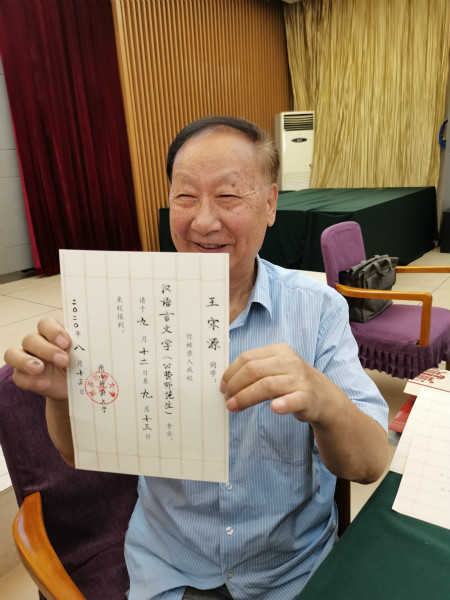 王宋源 同学：
你被录入我校
汉语言文学（公费师范生）专业，
请于九月十二日至九月十三日
来校报到。
二〇二〇年八月十三日